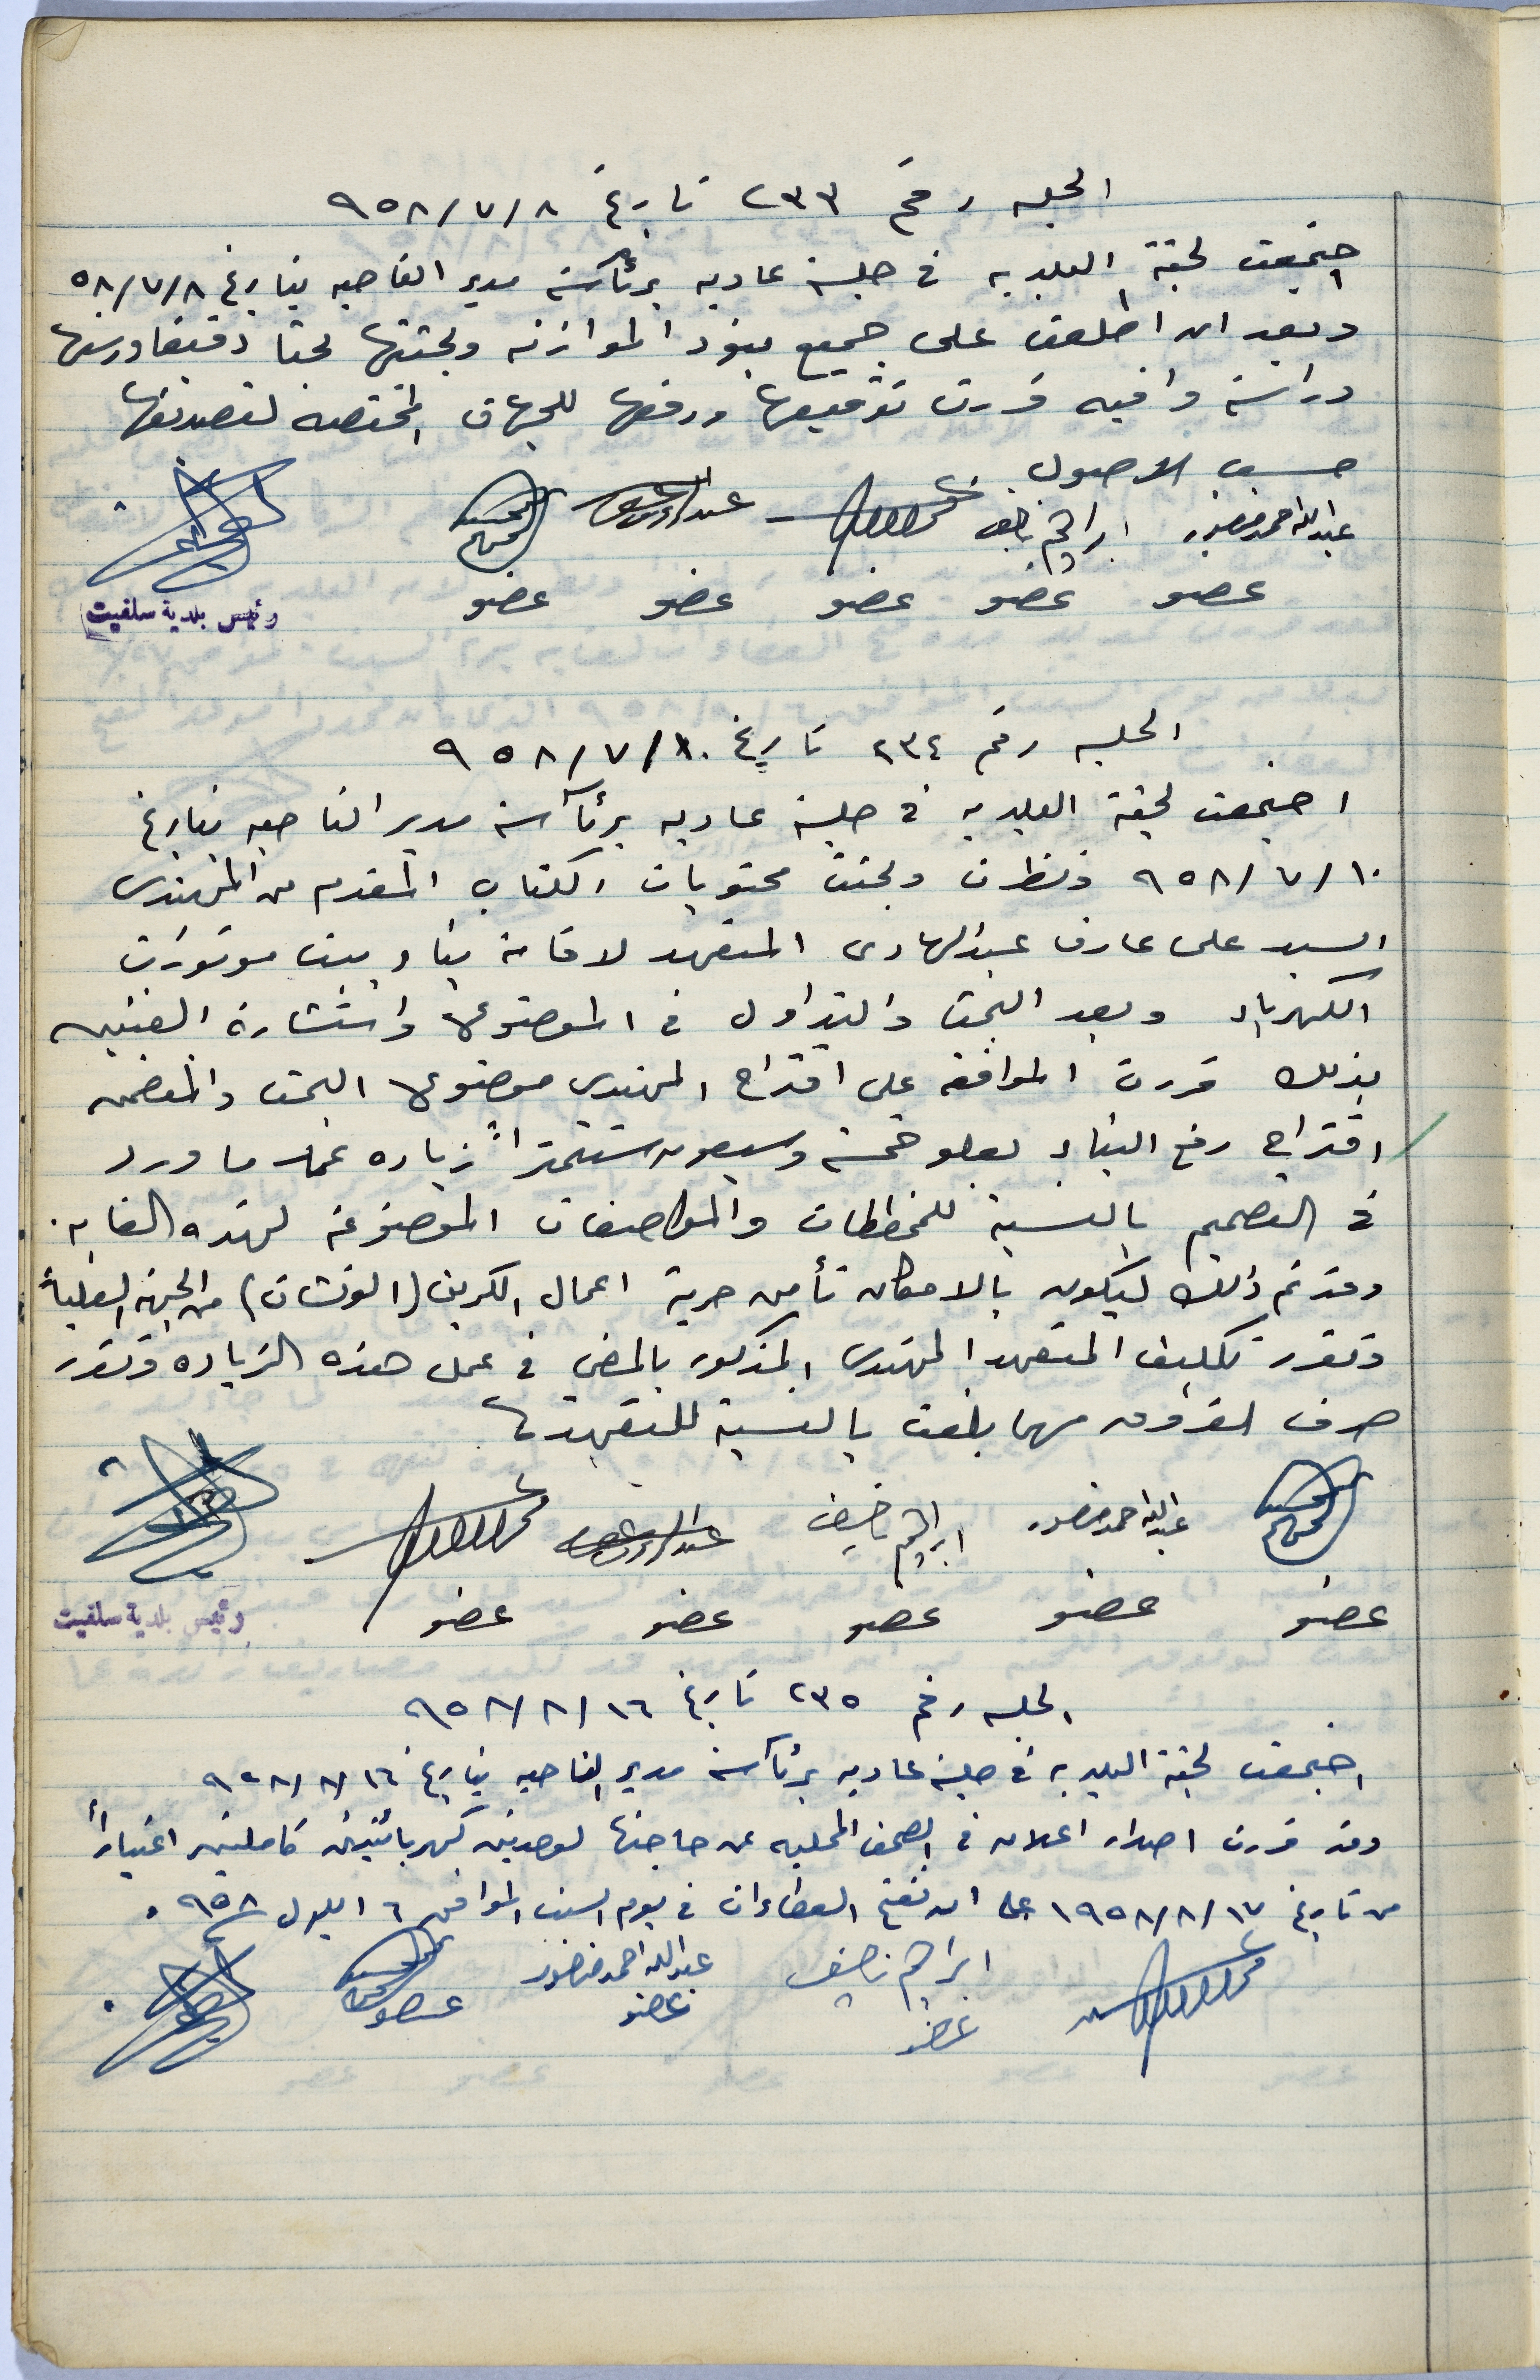 الجلسه رقم ٢٣٣ تاريخ ٩٥٨/٧/٨
اجتمعت لجنة البلديه في جلسة عاديه برئآسة مدير الناحيه بتاريخ ٥٨/٧/٨
وبعد ان اطلعت على جميع بنود الموازنه وبحثتها بحثا دقيقا ودرستها
دراسة وافيه قررت توقيعها ورفعها للجهات المختصه لتصديقها
حسب الاصول.
عبدالله احمد منصور ابراهيم ناصيف
عضو عضو عضو عضو عضو
رئيس بلدية سلفيت
الجلسه رقم ٢٣٤ تاريخ ٩٥٨/٧/١٠
اجتمعت لجنة البلديه في جلسة عاديه برئآسة مدير الناحيه بتاريخ
٩٥٨/٧/١٠ ونظرت وبحثت محتويات الكتاب المقدم من المهندس
السيد على عارف عبدالهادى المتعهد لاقامة بناء بيت موتورات
الكهرباء وبعد البحث والتداول في الموضوع واستشارة الفنيين
بذلك قررت الموافقه على اقتراح المهندس موضوع البحث والمتضمن
اقتراح رفع البناء بعلو خمسة وسبعون سنتمتراً زياده عما ورد
في التصميم بالنسبة للمخططات والمواصفات الموضوعة لهذه الغايه.
وقد تم ذلك ليكون بالامكان تأمين حرية اعمال الكرين (الونشات) من الجهة العليا
وتقرر تكليف المتعهد المهندس المذكور بالمضي في عمل هذه الزياده وتقرر
صرف الفروق مهما بلغت بالنسبة للتعهد
عبدالله احمد منصور ابراهيم ناصيف
عضو عضو عضو عضو عضو
رئيس بلدية سلفيت
الجلسه رقم ٢٣٥ تاريخ ٩٥٨/٨/١٦
اجتمعت لجنة البلديه في جلسة عاديه برئآسة مدير الناحيه بتاريخ ٩٥٨/٨/١٦
وقد قررت اصدار اعلان في الصحف المحليه عن حاجتها لوحدتين كهربائيتين كاملتين اعتباراً
من تاريخ ١٩٥٨/٨/١٧ على ان تفتح العطاءات في يوم السبت الموافق ٦ ايلول ٩٥٨.
ابراهيم ناصيف عبدالله احمد منصور
عضو عضو عضو